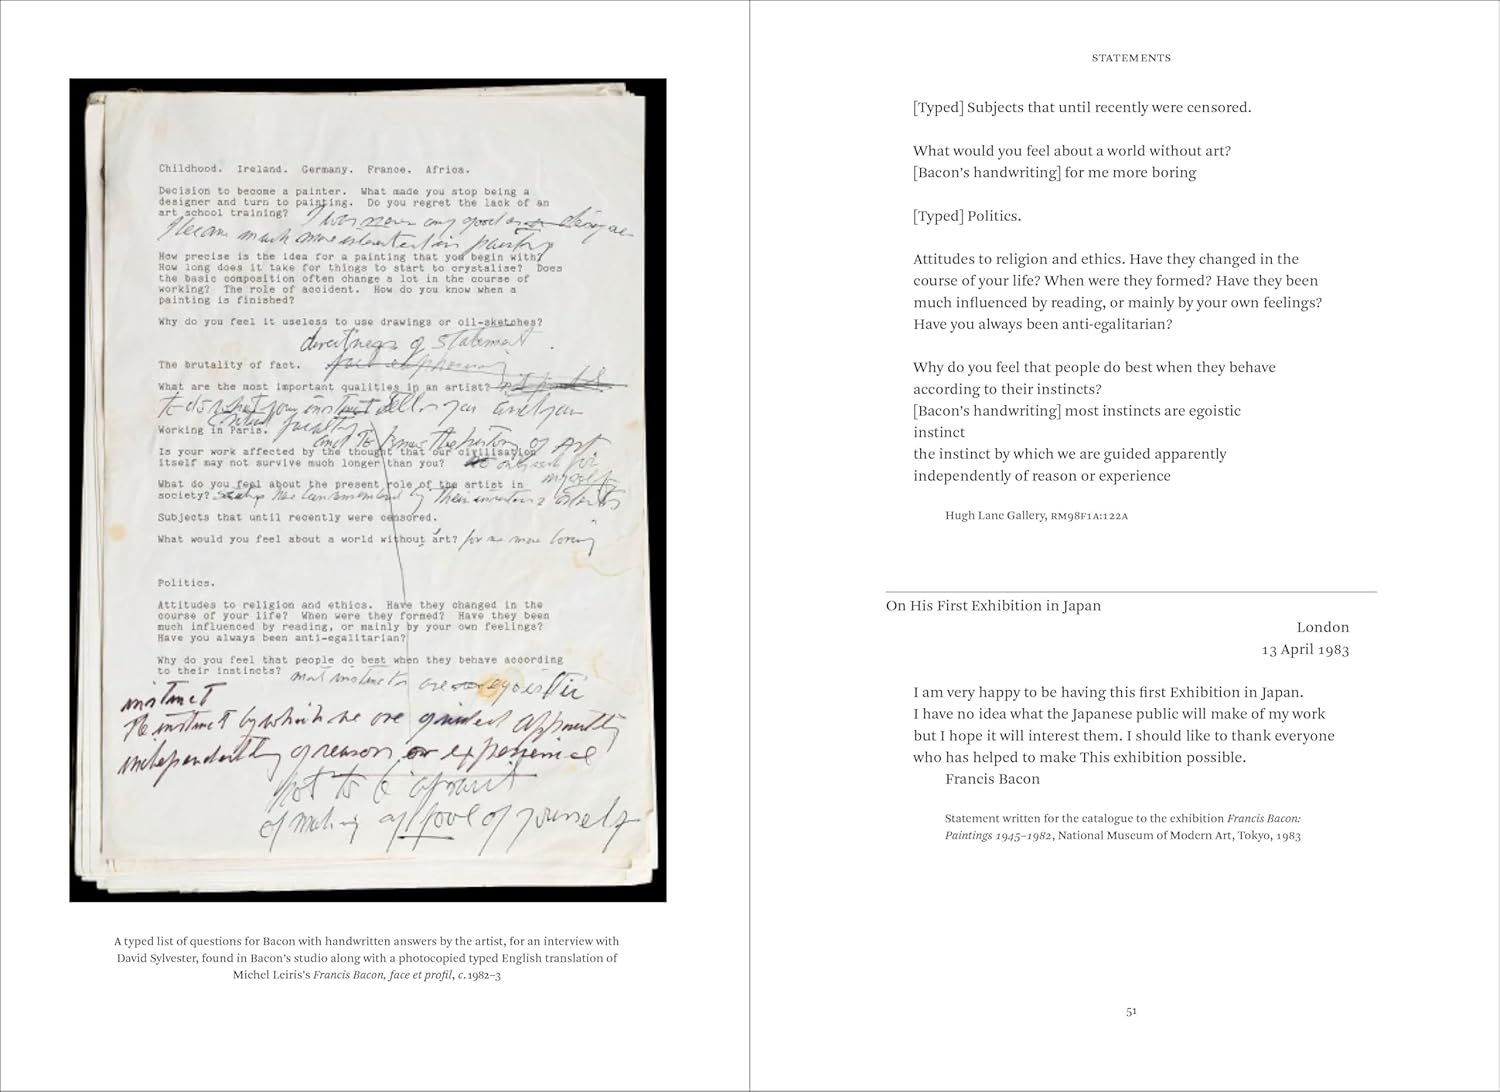 Childhood. Ireland. Germany. France. Africa.
Decision to become a painter. What made you stop being a
designer and turn to painting. Do you regret the lack of an
art school training? I was never any good as a designer
I became much more interested in painting
How precise is the idea for a painting that you begin with?
How long does it take for things to start to crystalise? Does
the basic composition often change a lot in the course of
working? The role of accident. How do you know when a
painting is finished?
Why do you feel it useless to use drawings or oil-sketches?
directness of statement.
The brutality of fact.
What are the most important qualities in an artist?
to do what your instinct tells you and your
critical faculty
Working in Paris. and to know the history of Art
Is your work affected by the thought that our civilisation
itself may not survive much longer than you? only for
myself
What do you feel about the present role of the artist in
society? has been remembered by their artists
Subjects that until recently were censored.
What would you feel about a world without art? for me more boring
Politics.
Attitudes to religion and ethics. Have they changed in the
course of your life? When were they formed? Have they been
much influenced by reading, or mainly by your own feelings?
Have you always been anti-egalitarian?
Why do you feel that people do best when they behave according
to their instincts? most instincts are egoistic
instinct
the instinct by which we are guided apparently
independently of reason or experience
not to be afraid
of making a fool of yourself
A typed list of questions for Bacon with handwritten answers by the artist, for an interview with
David Sylvester, found in Bacon's studio along with a photocopied typed English translation of
Michel Leiris's Francis Bacon, face et profil, c. 1982–3
STATEMENTS
[Typed] Subjects that until recently were censored.
What would you feel about a world without art?
[Bacon's handwriting] for me more boring
[Typed] Politics.
Attitudes to religion and ethics. Have they changed in the
course of your life? When were they formed? Have they been
much influenced by reading, or mainly by your own feelings?
Have you always been anti-egalitarian?
Why do you feel that people do best when they behave
according to their instincts?
[Bacon's handwriting] most instincts are egoistic
instinct
the instinct by which we are guided apparently
independently of reason or experience
Hugh Lane Gallery, RM98F1A:122A
On His First Exhibition in Japan
London
13 April 1983
I am very happy to be having this first Exhibition in Japan.
I have no idea what the Japanese public will make of my work
but I hope it will interest them. I should like to thank everyone
who has helped to make This exhibition possible.
Francis Bacon
Statement written for the catalogue to the exhibition Francis Bacon:
Paintings 1945–1982, National Museum of Modern Art, Tokyo, 1983
51